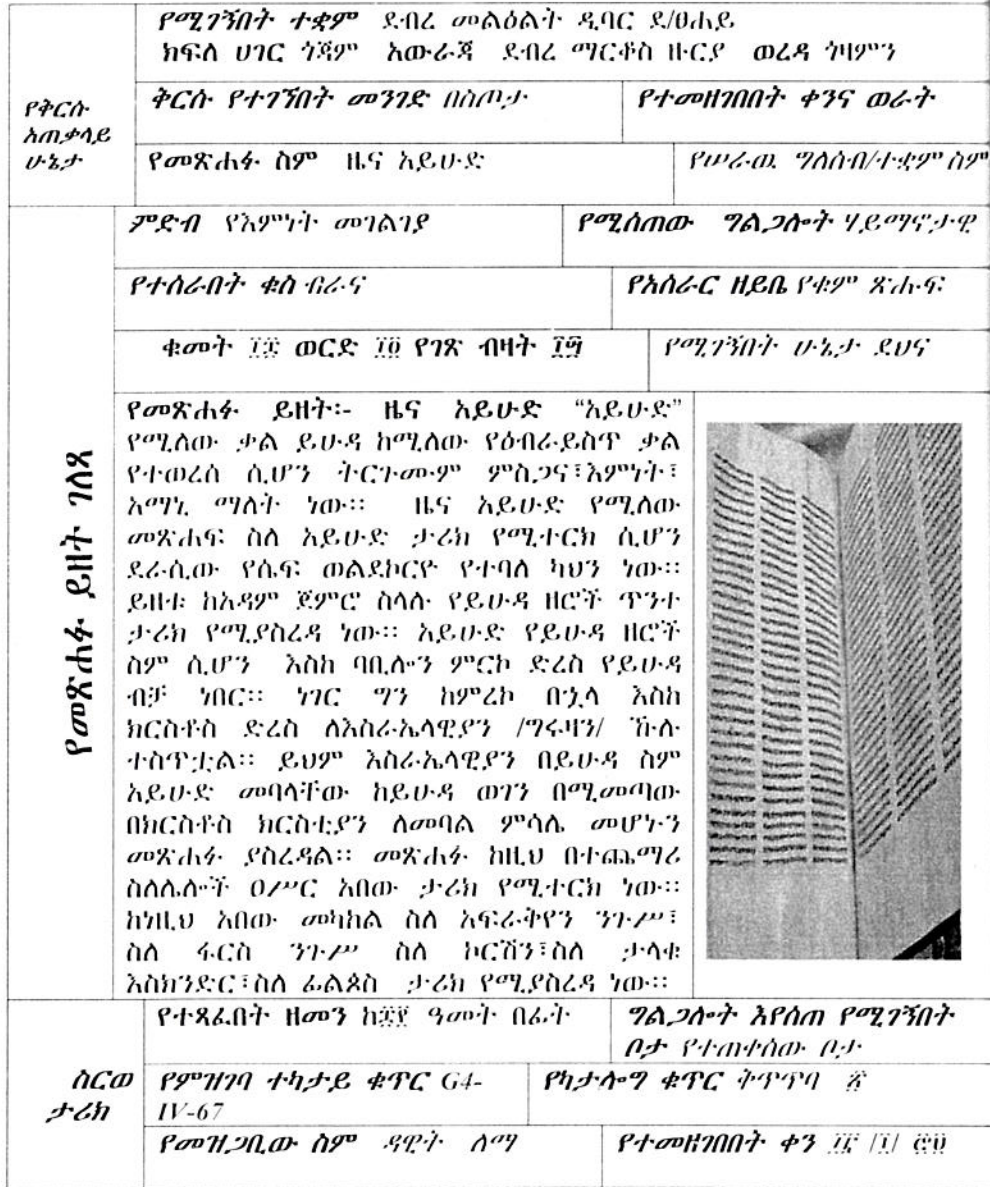 የሚገኝበት ተቋም ደብረ መልዕልት ዲባር ደ/ፀሐይ
ክፍለ ሀገር ጎጃም አውራጃ ደብረ ማርቆስ ዙርያ ወረዳ ጎዛምን
የቅርሱ አጠቃላይ ሁኔታ
ቅርሱ የተገኘበት መንገድ በስጦታ
የተመዘገበበት ቀንና ወራት
የመጽሐፉ ስም ዜና አይሁድ
የሠራዉ ግለሰብ/ተቋም ስም
ምድብ የእምነት መገልገያ
የሚሰጠው ግልጋሎት ሃይማኖታዊ
የተሰራበት ቁስ ብራና
የአሰራር ዘይቤ የቁም ጽሑፍ
ቁመት ወርድ የገጽ ብዛት
የሚገኝበት ሁኔታ ደህና
የመጽሐፉ ይዘት ገለጻ
የመጽሐፉ ይዘት፡- ዜና አይሁድ “አይሁድ”
የሚለው ቃል ይሁዳ ከሚለው የዕብራይስጥ ቃል
የተወረሰ ሲሆን ትርጉሙም ምስጋና፣እምነት፣
አማኒ ማለት ነው። ዜና አይሁድ የሚለው
መጽሐፍ ስለ አይሁድ ታሪክ የሚተርክ ሲሆን
ደራሲው የሴፍ ወልደኮርዮ የተባለ ካህን ነው።
ይዘቱ ከአዳም ጀምሮ ስላሉ የይሁዳ ዘሮች ጥንተ
ታሪክ የሚያስረዳ ነው። አይሁድ የይሁዳ ዘሮች
ስም ሲሆን እስከ ባቢሎን ምርኮ ድረስ የይሁዳ
ብቻ ነበር። ነገር ግን ከምረኮ በኋላ እስከ
ክርስቶስ ድረስ ለእስራኤላዊያን /ግሩዛን/ ኹሉ
ተስጥቷል። ይህም እስራኤላዊያን በይሁዳ ስም
አይሁድ መባላቸው ከይሁዳ ወገን በሚመጣው
በክርስቶስ ክርስቲያን ለመባል ምሳሌ መሆኑን
መጽሐፉ ያስረዳል። መጽሐፉ ከዚህ በተጨማሪ
ስለሌሎች ዐሥር አበው ታሪክ የሚተርክ ነው።
ከነዚህ አበው መካከል ስለ አፍራቅየን ንጉሥ፣
ስለ ፋርስ ንጉሥ ስለ ኮርሽን፣ስለ ታላቁ
እስክንድር፣ስለ ፊልጶስ ታሪክ የሚያስረዳ ነው።
ስርወ ታሪክ
የተጻፈበት ዘመን ዓመት በፊት
ግልጋሎት እየሰጠ የሚገኝበት
ቦታ የተጠቀሰው ቦታ
የምዝገባ ተካታይ ቁጥር G4-
IV-67
የካታሎግ ቁጥር ቅጥጥባ
የመዝጋቢው ስም ዳዊት ለማ
የተመዘገበበት ቀን